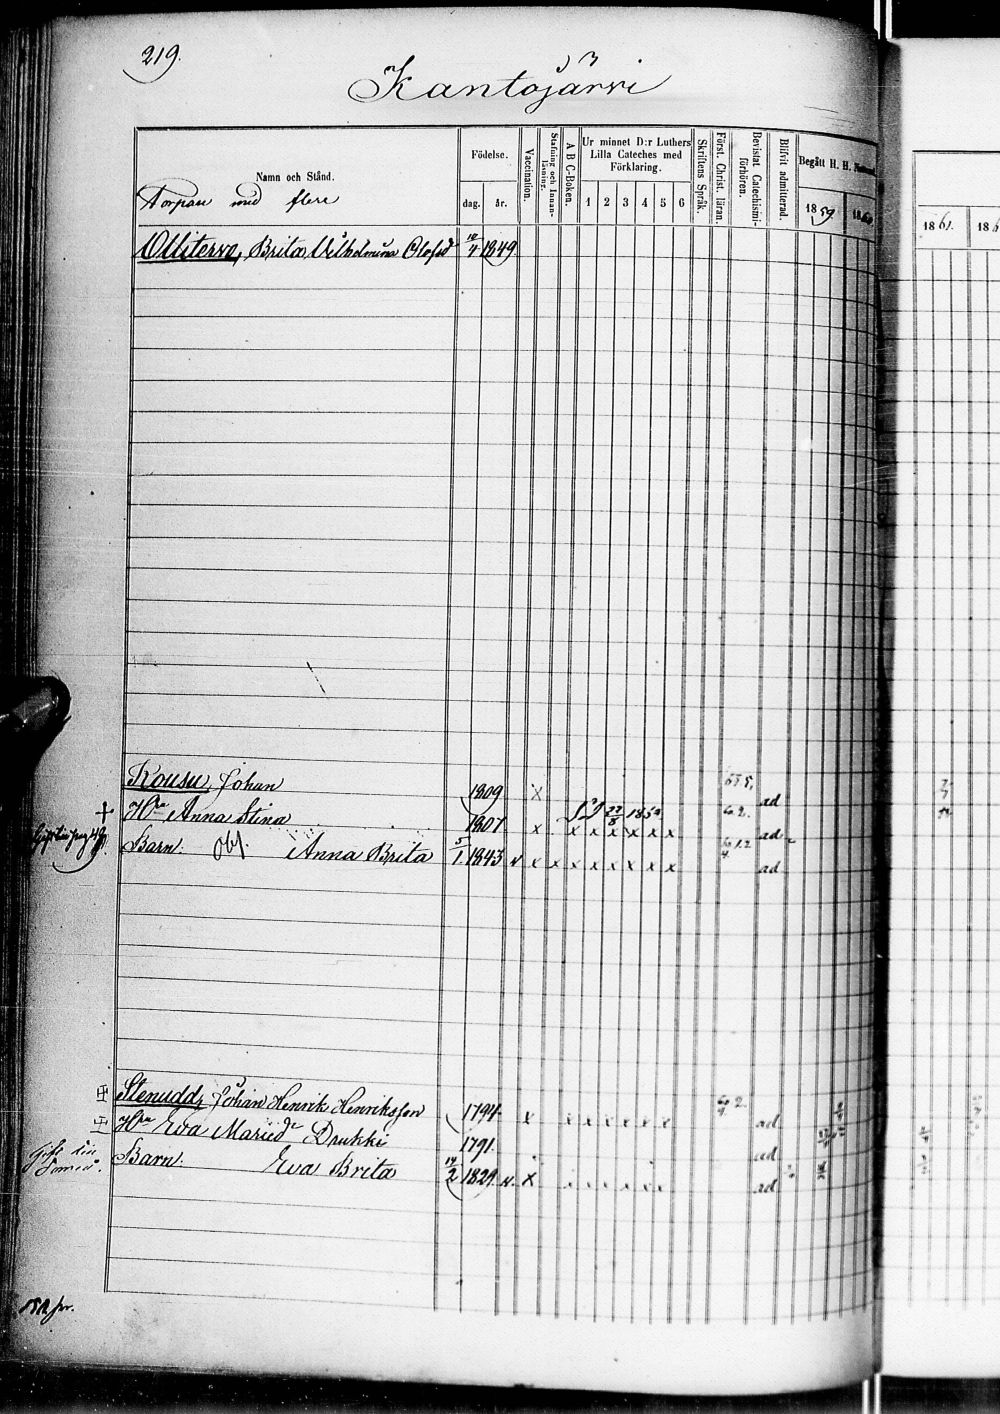 219.
Kantojärvi
Namn och Stånd.
Födelse.
dag.
år.
Vaccination.
Stafning och Innan-läsning.
A B C-Boken.
Ur minnet D:r Luthers
Lilla Cateches med
Förklaring.
1 2 3 4 5 6
Skriftens Språk.
Först. Christ. läran.
Bevistat Catechismi-förhören.
Blifvit admitterad.
Begått H. H.
1859
1860
1861.
186
med flere
Ollitervo, Brita Vilhelmina Olofsd 10/4 1849
Kousu, Johan 1809 x ad
H:n Anna Stina 1807 x x x x x x x ad
Barn. Anna Brita 5/1 1843 x x x x x x x x ad
Stenudd, Johan Henrik Henriksson 1794 x x x x x x x ad
H:n Eva Marieд:r Drukki 1791. ad
Barn. Eva Brita 14/2 1829 x x x x x x x ad